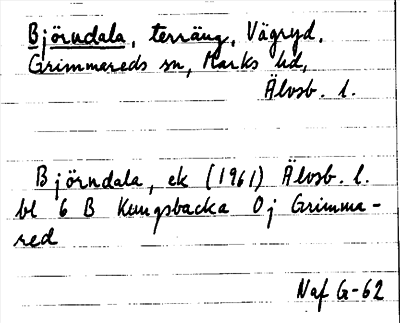 Björndala, terräng, Vägryd,
Grimmereds sn, Marks hd,
Älvsb. l.
Björndala, ek (1961) Älvsb. l.
bl 6 B Kungsbacka 0 j Grimma-
red
Naf G-62